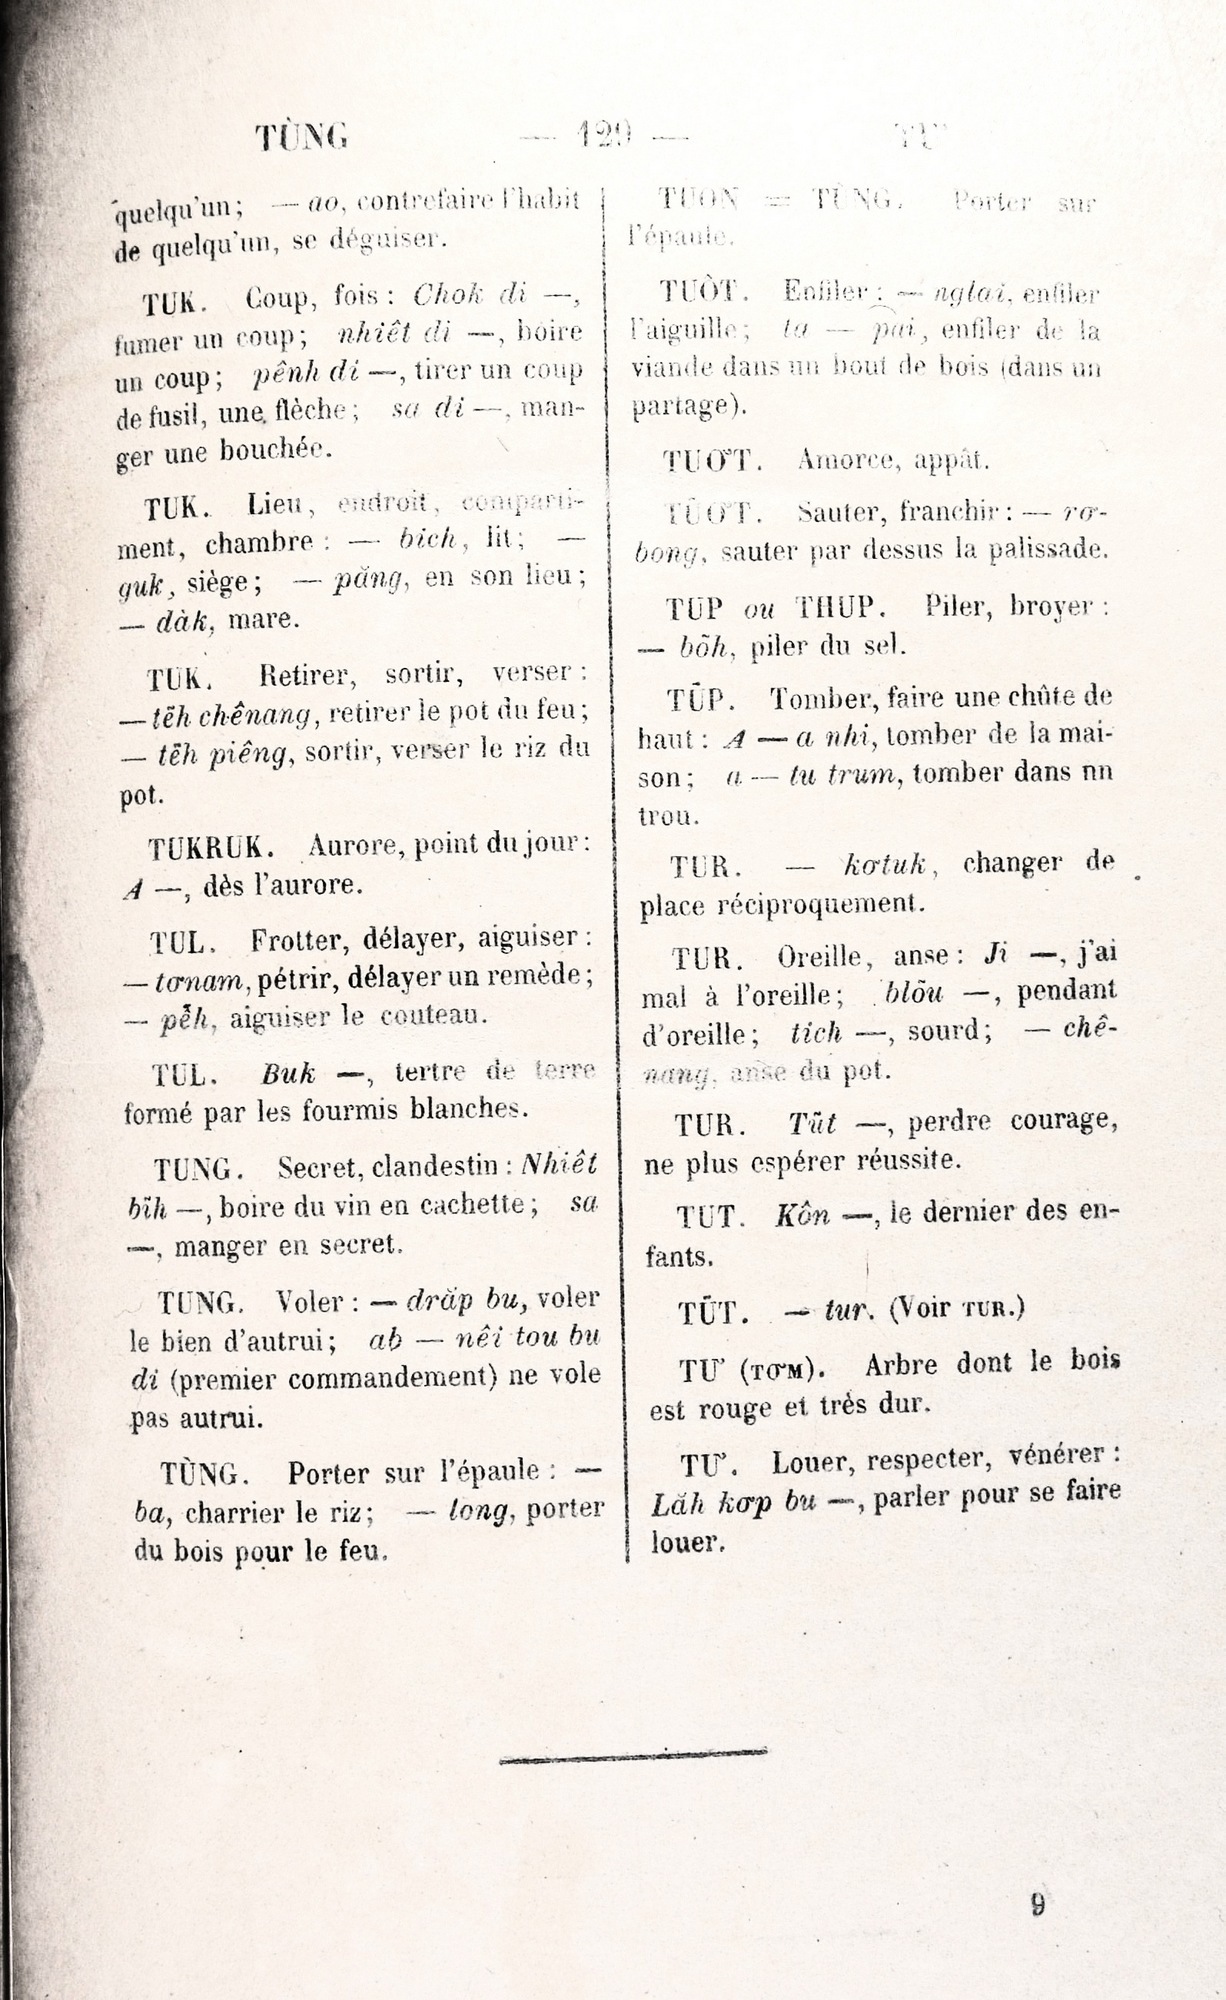 TÙNG — 129 — TƯ
quelqu'un; — ao, contrefaire l'habit
de quelqu'un, se déguiser.
TUK. Coup, fois : Chok di —,
fumer un coup; nhiêt di —, boire
un coup; pênh di —, tirer un coup
de fusil, une flèche; sa di —, man-
ger une bouchée.
TUK. Lieu, endroit, comparti-
ment, chambre : — bich, lit; —
guk, siège; — păng, en son lieu;
— dàk, mare.
TUK. Retirer, sortir, verser :
— tĕh chênang, retirer le pot du feu;
— tĕh piêng, sortir, verser le riz du
pot.
TUKRUK. Aurore, point du jour :
A —, dès l'aurore.
TUL. Frotter, délayer, aiguiser :
— tơnam, pétrir, délayer un remède;
— pĕh, aiguiser le couteau.
TUL. Buk —, tertre de terre
formé par les fourmis blanches.
TUNG. Secret, clandestin : Nhiêt
bĭh —, boire du vin en cachette; sa
—, manger en secret.
TUNG. Voler : — drăp bu, voler
le bien d'autrui; ab — nêi tou bu
di (premier commandement) ne vole
pas autrui.
TÙNG. Porter sur l'épaule : —
ba, charrier le riz; — long, porter
du bois pour le feu.
TUON = TÙNG. Porter sur
l'épaule.
TUÒT. Enfiler : — nglai, enfiler
l'aiguille; ta — pai, enfiler de la
viande dans un bout de bois (dans un
partage).
TUƠT. Amorce, appât.
TŬƠT. Sauter, franchir : — rơ-
bong, sauter par dessus la palissade.
TUP ou THUP. Piler, broyer :
— bŏh, piler du sel.
TŬP. Tomber, faire une chûte de
haut : A — a nhi, tomber de la mai-
son; a — tu trum, tomber dans nn
trou.
TUR. — kơtuk, changer de
place réciproquement.
TUR. Oreille, anse : Ji —, j'ai
mal à l'oreille; blŏu —, pendant
d'oreille; tich —, sourd; — chê-
nang, anse du pot.
TUR. Tŭt —, perdre courage,
ne plus espérer réussite.
TUT. Kôn —, le dernier des en-
fants.
TŬT. — tur. (Voir TUR.)
TƯ (TƠM). Arbre dont le bois
est rouge et très dur.
TƯ. Louer, respecter, vénérer :
Lăh kơp bu —, parler pour se faire
louer.
9